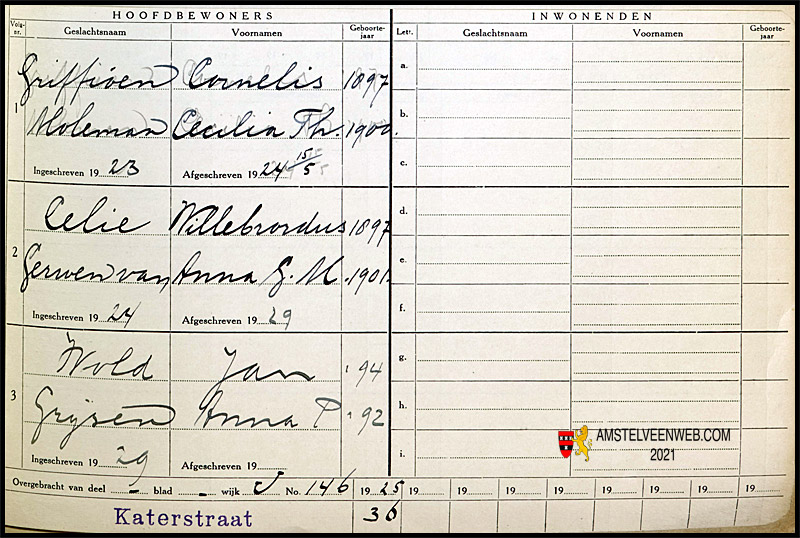 HOOFDBEWONERS INWONENDEN
Volg-nr. Geslachtsnaam Voornamen Geboorte-jaar Letr. Geslachtsnaam Voornamen Geboorte-jaar
Griffioen Cornelis 1897 a.
1 Moleman Cecilia Th. 1900. b.
Ingeschreven 1923 Afgeschreven 1924 15/5 c.
Celie Willebrordus 1897 d.
2 Gerwen van Anna G. M. 1901. e.
Ingeschreven 1924 Afgeschreven 1929 f.
Wold Jan '94 g.
3 Grijsen Anna P '92 h.
Ingeschreven 1929 Afgeschreven 19 i.
AMSTELVEENWEB.COM
2021
Overgebracht van deel - blad - wijk J No. 146 1925 19 19 19 19 19 19 19 19 19
Katerstraat 36